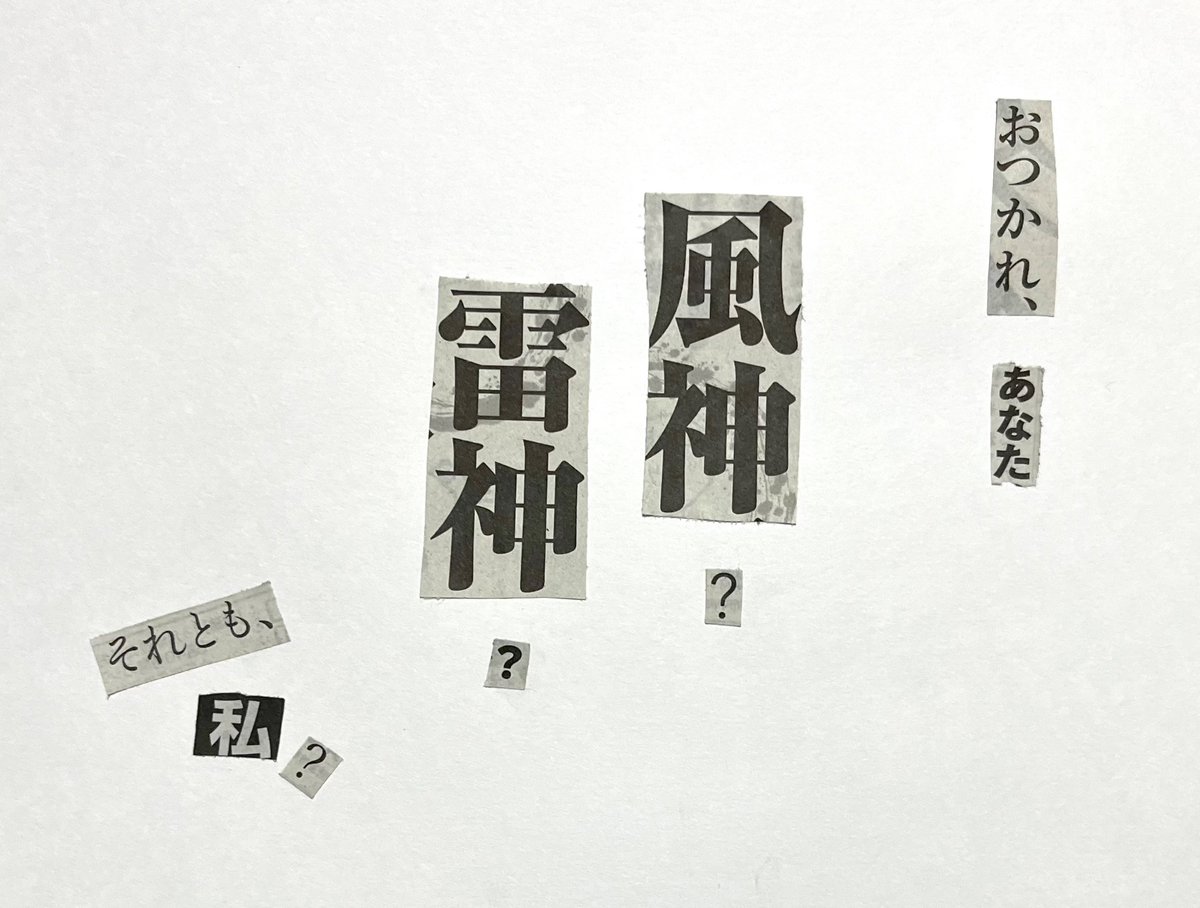 おつかれ、
あなた
風神
?
雷神
?
それとも、
私
?